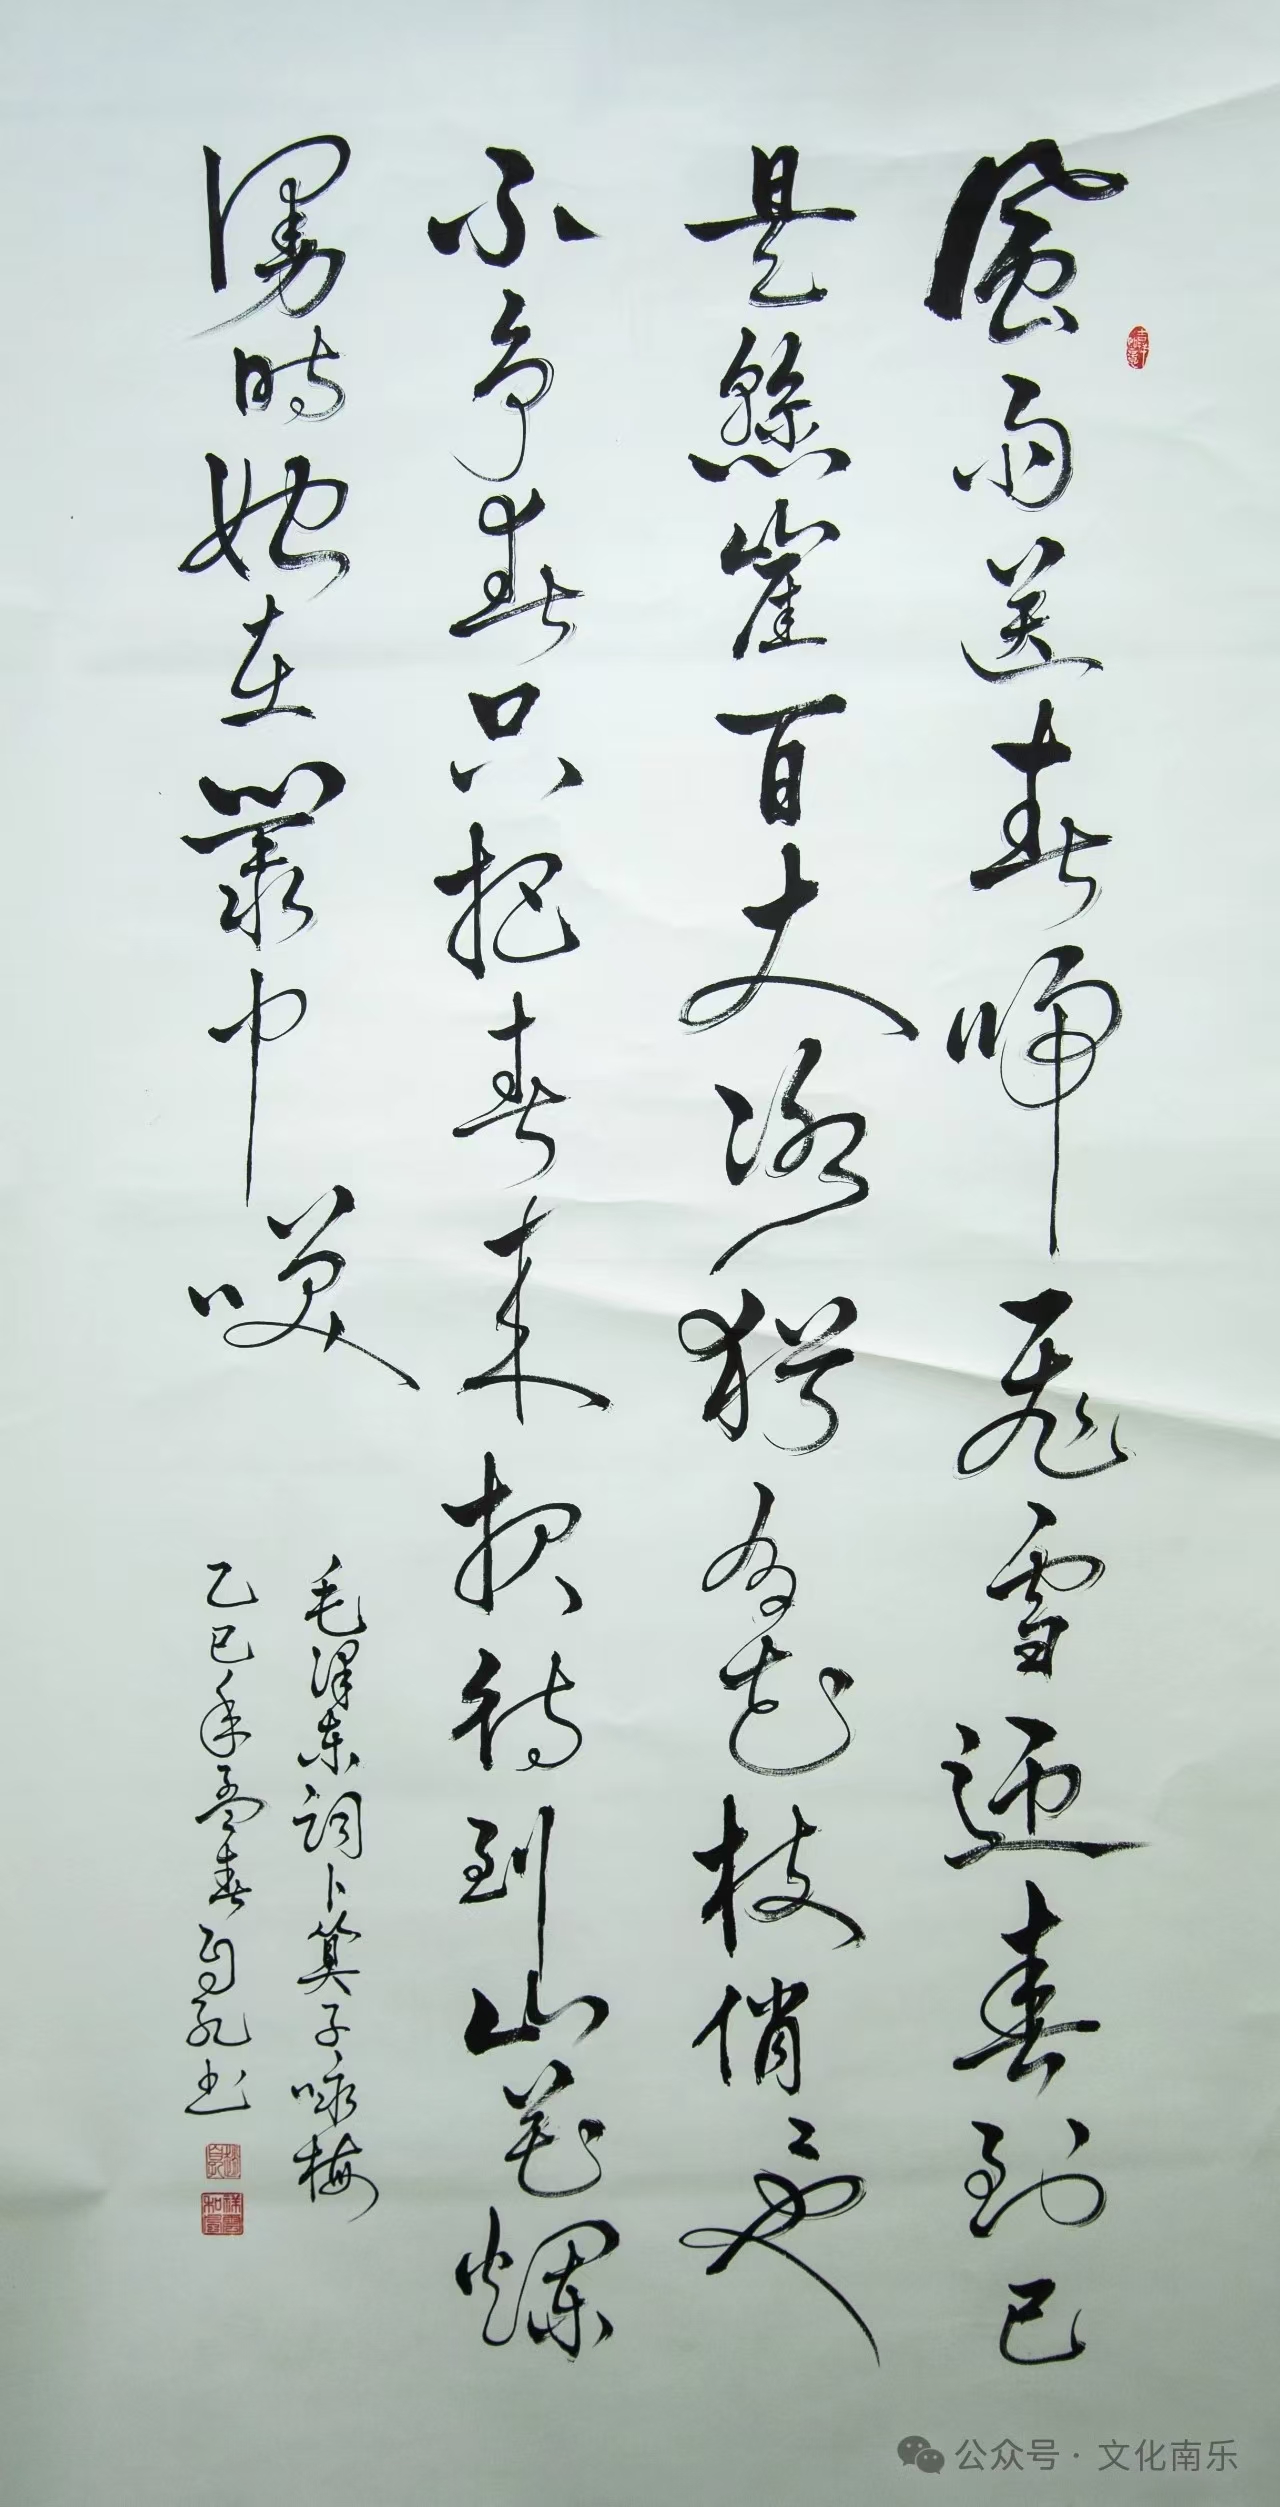 風雨送春歸飛雪迎春到已
是懸崖百丈冰猶有花枝俏々也
不争春只把春来报待到山花爛
漫時她在叢中咲
毛泽东词卜算子咏梅
乙巳年孟春书
公众号·文化南乐